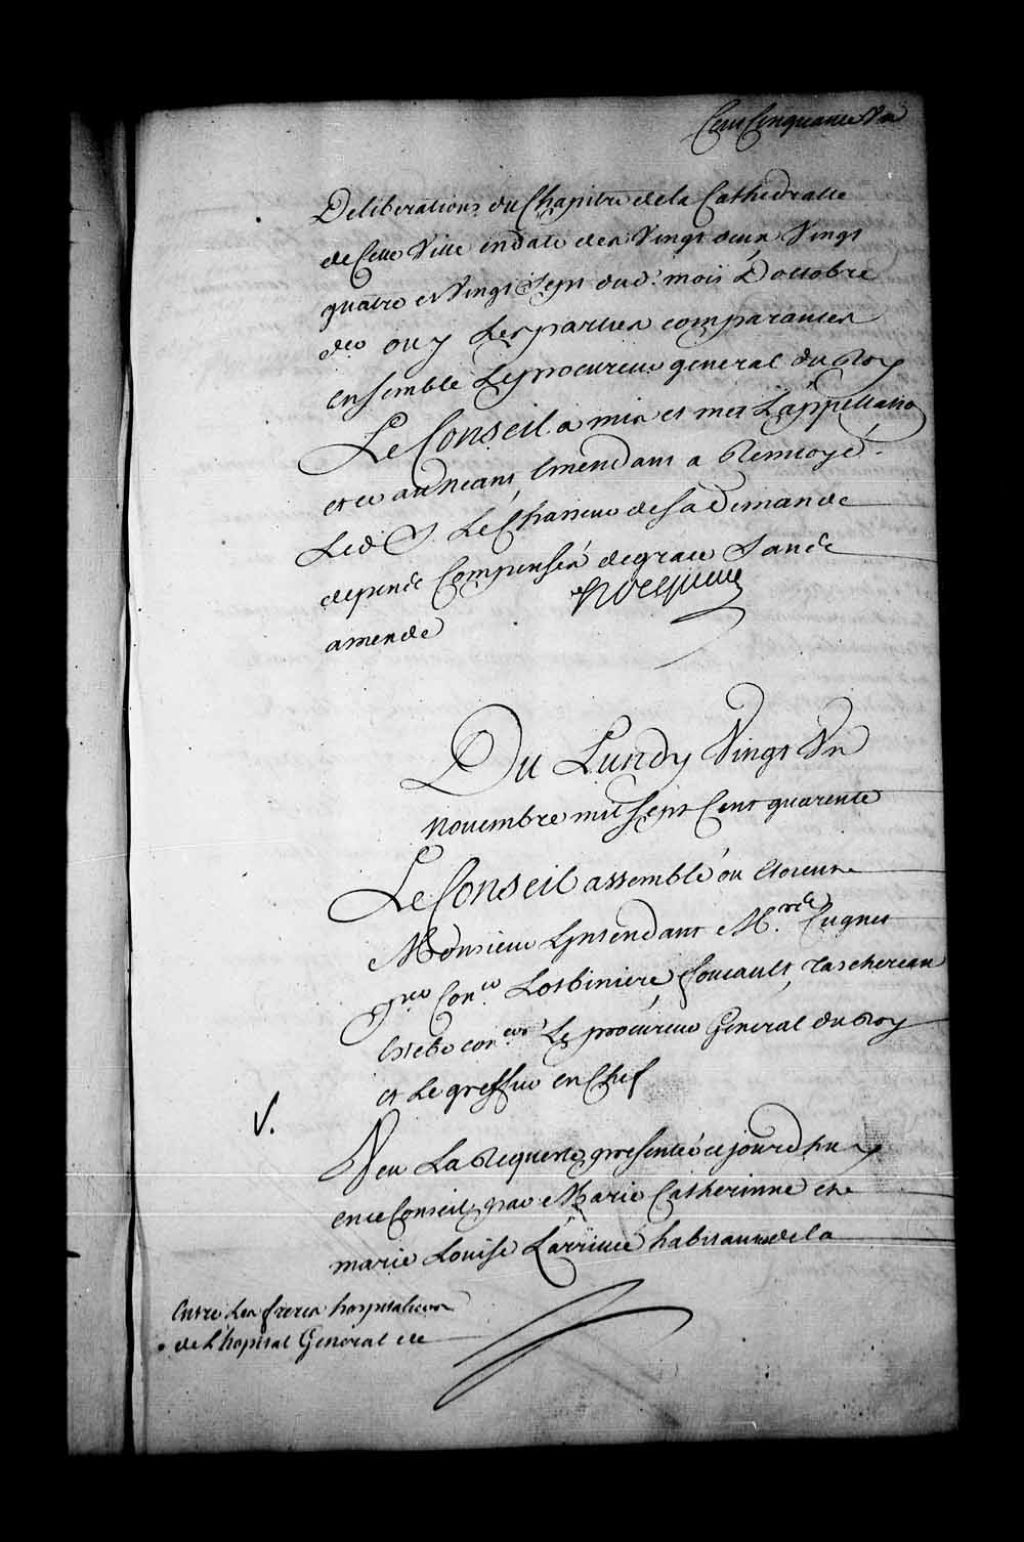 Cent Cinquante Un
Deliberations du Chapitre de la Cathedralle
de Cette Ville en date des Vingt deux Vingt
quatre et Vingt Sept dud. mois D'octobre
ouy Les parties comparantes
ensemble Le procureur general du Roy
Le Conseil a mis et met L'appellation
et ce au neant, Emendant a Renvoyé
Led. S. Le Chasseur de sa demande
depens Compensés de grace Sans
amende
hocquart
Du Lundy Vingt Un
novembre mil Sept Cent quarente
Le Conseil assemblé ou Etoient
Monsieur Lyntendant M.rs Cugnet
p.er Con.er Lotbiniere, foucault, Taschereau
Estebe con.ers Le procureur General du Roy
et Le greffier en Chef
V.
Veu La Requeste presentée ce jourd'huy
en ce Conseil par Marie Catherinne et
marie Louise Larrivée habitantes de la
Entre Les freres hospitaliers
de L'hopital General et